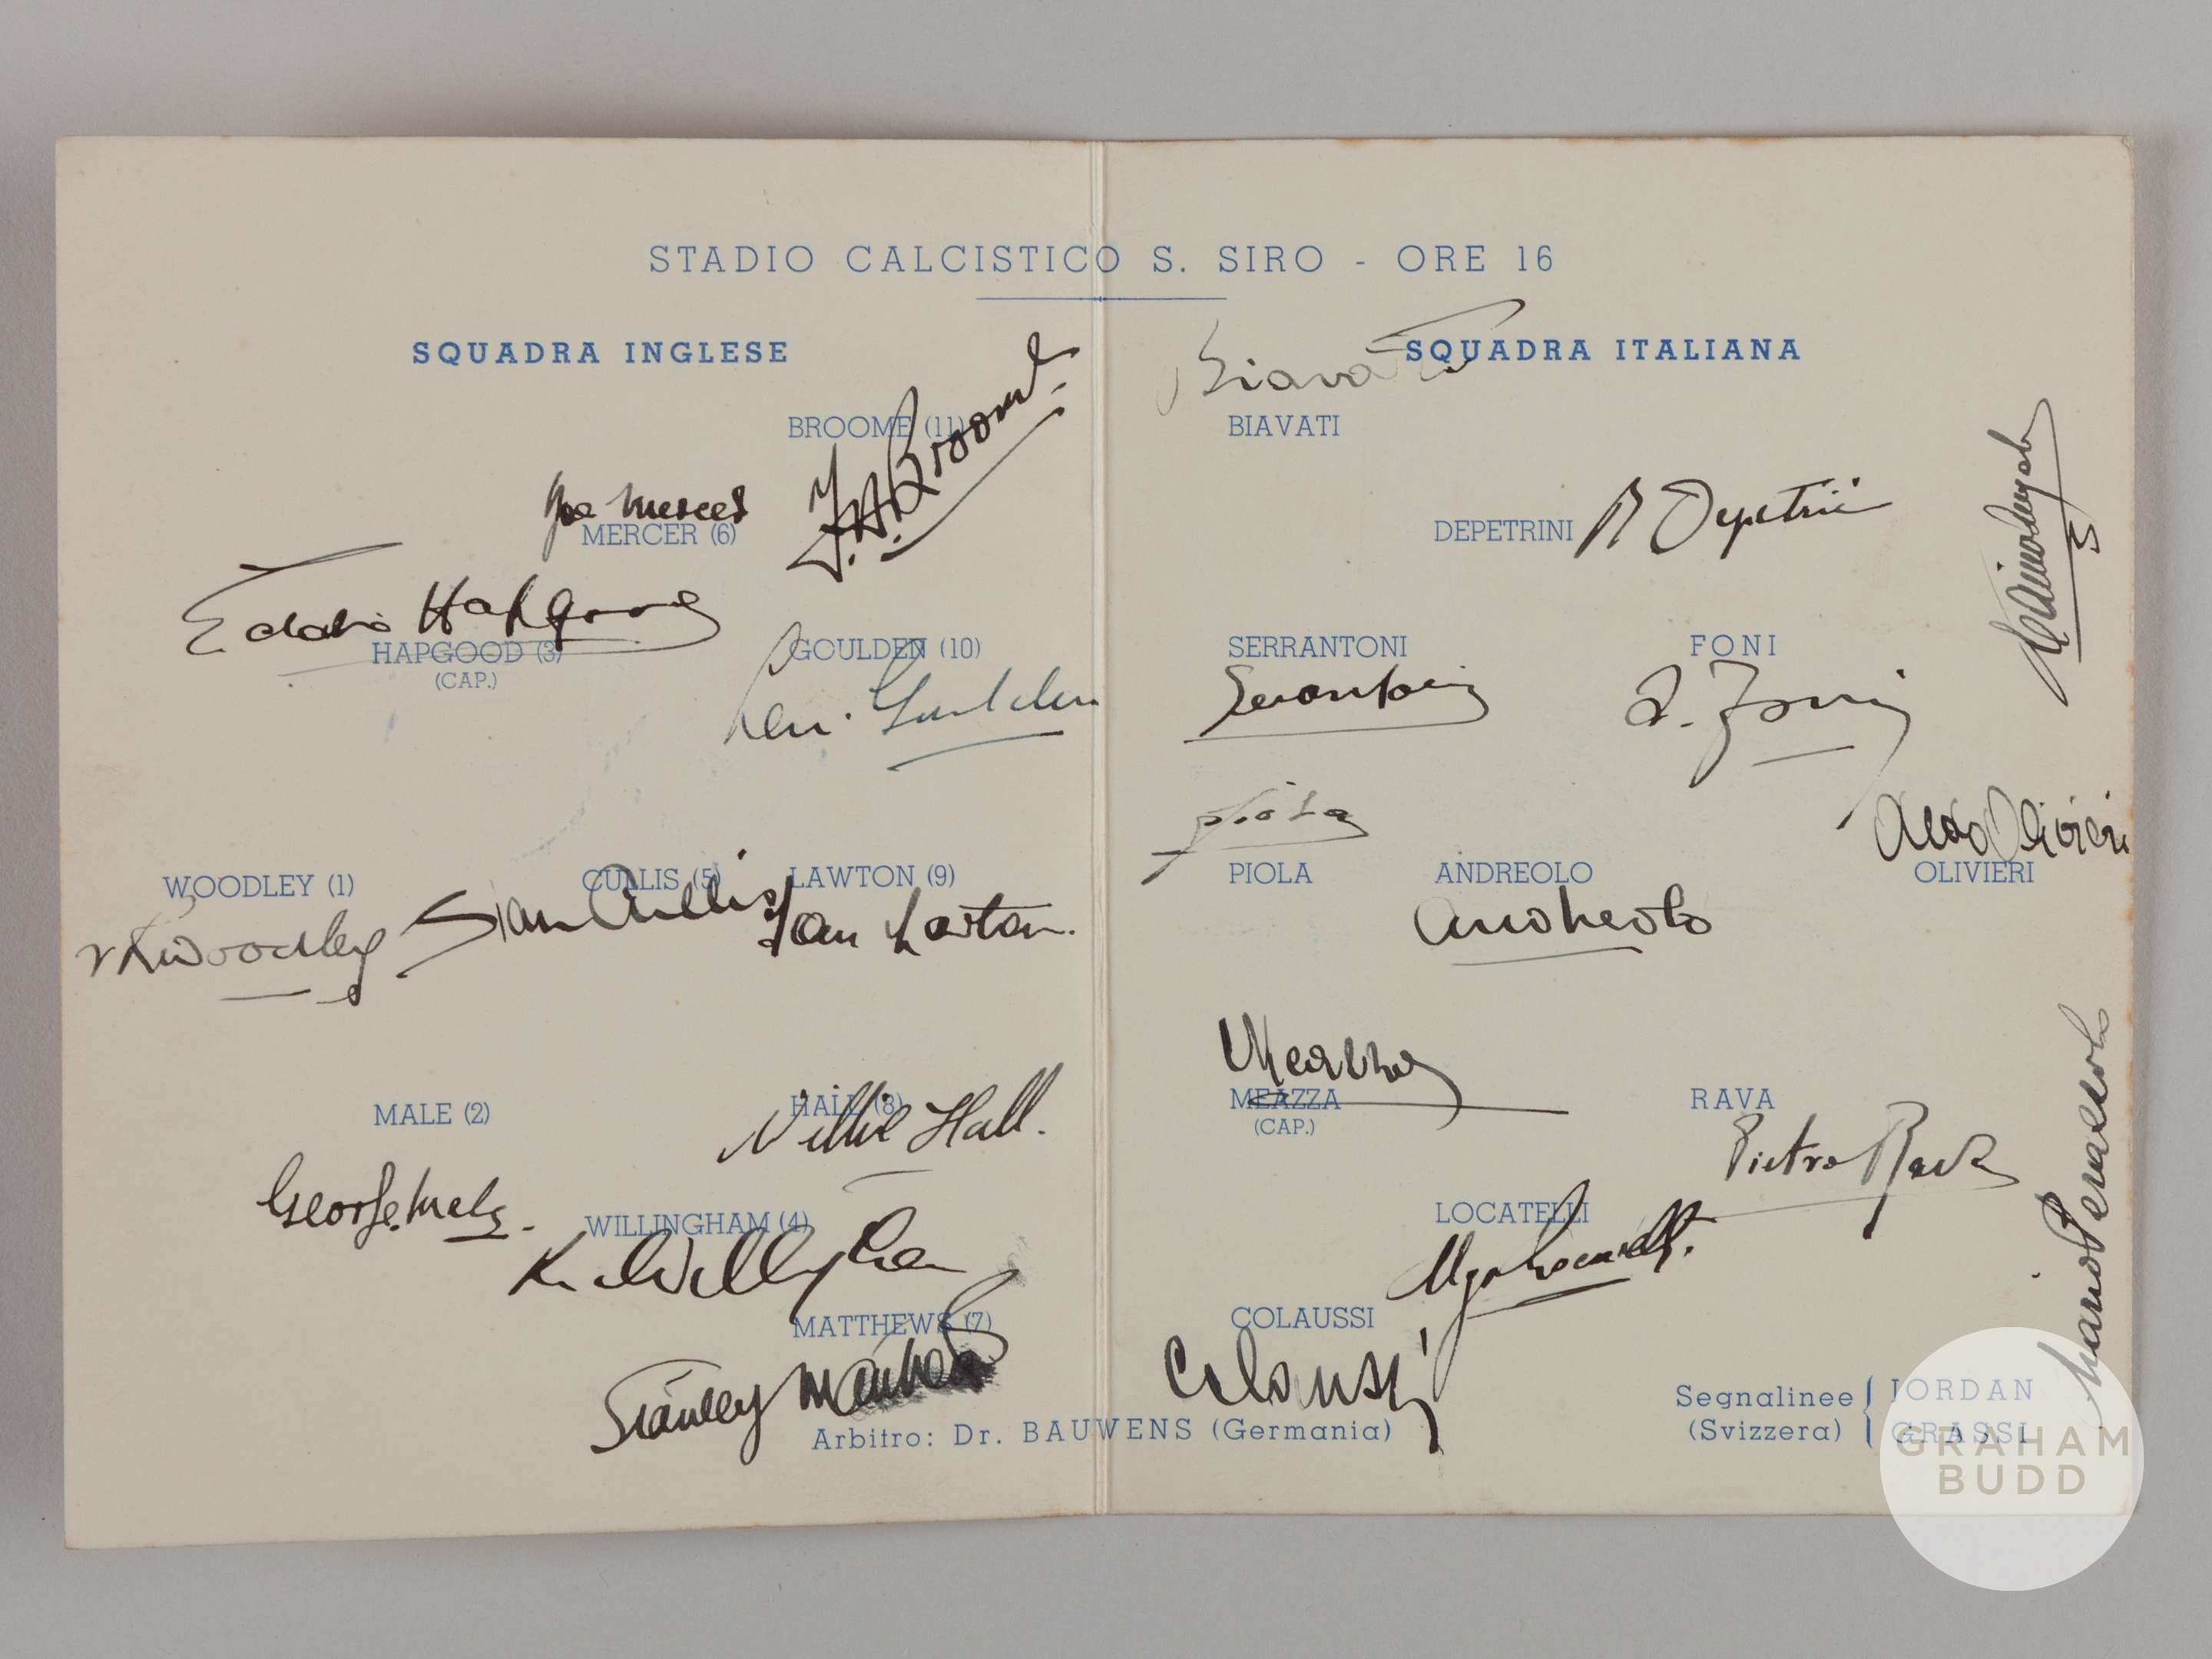 STADIO CALCISTICO S. SIRO - ORE 16
SQUADRA INGLESE
BROOME (11)
F.H. Broome.
Joe Mercer
MERCER (6)
Eddie Hapgood
HAPGOOD (3)
(CAP.)
GOULDEN (10)
Len. Goulden
WOODLEY (1)
V R Woodley
CULLIS (5)
Stan Cullis
LAWTON (9)
Tom Lawton.
MALE (2)
George Male.
HALL (8)
Willie Hall.
WILLINGHAM (4)
K. Willingham
MATTHEWS (7)
Stanley Matthews
SQUADRA ITALIANA
Biavati
BIAVATI
DEPETRINI
Depetrini
SERRANTONI
Serantoni
FONI
A. Foni
Piola
PIOLA
ANDREOLO
Andreolo
Aldo Olivieri
OLIVIERI
Meazza
MEAZZA
(CAP.)
RAVA
Pietro Rava
LOCATELLI
Ugo Locatelli.
COLAUSSI
Colaussi
Mario Perazzolo
Arbitro: Dr. BAUWENS (Germania)
Segnalinee (Svizzera) { JORDAN
GRASSI
GRAHAM
BUDD